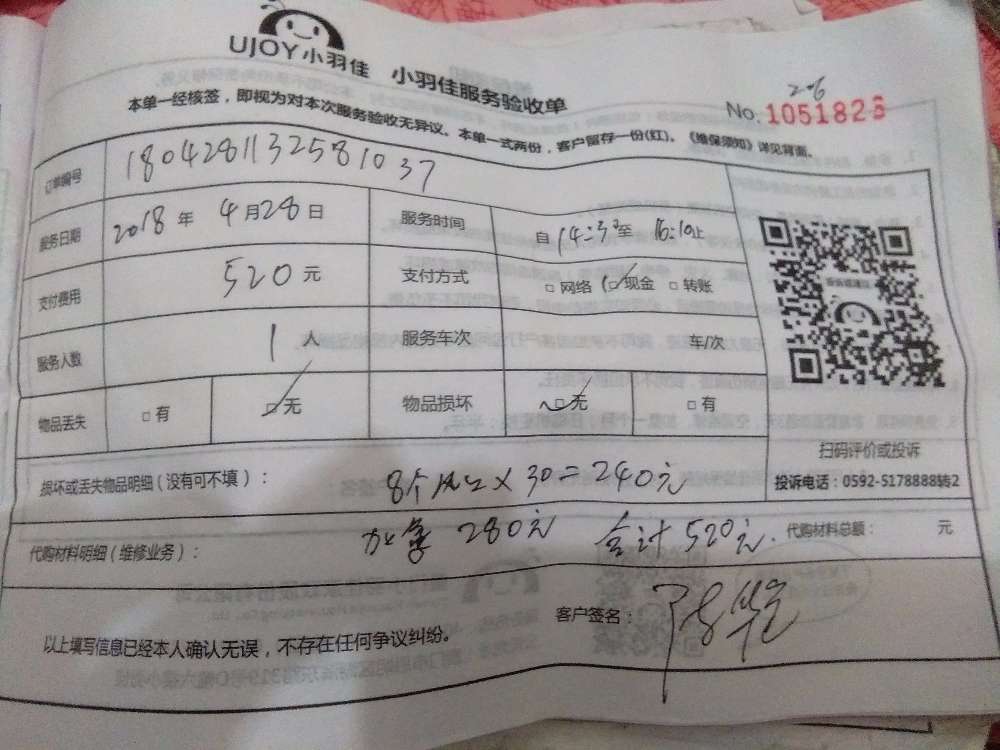 UJOY小羽佳 小羽佳服务验收单
2-6
No. 1051826
本单一经核签，即视为对本次服务验收无异议。本单一式两份，客户留存一份(红)。《维保须知》详见背面。
订单编号 1804281132581037
服务日期 2018年4月28日 服务时间 自14:30至16:10止
支付费用 520元 支付方式 □网络 ☑现金 □转账
服务人数 1人 服务车次 车/次
物品丢失 □有 ☑无 物品损坏 ☑无 □有
扫码评价或投诉
投诉电话：0592-5178888转2
损坏或丢失物品明细（没有可不填）： 8个风口×30=240元
代购材料明细（维修业务）： 加氟280元 合计520元. 代购材料总额： 元
以上填写信息已经本人确认无误，不存在任何争议纠纷。 客户签名：